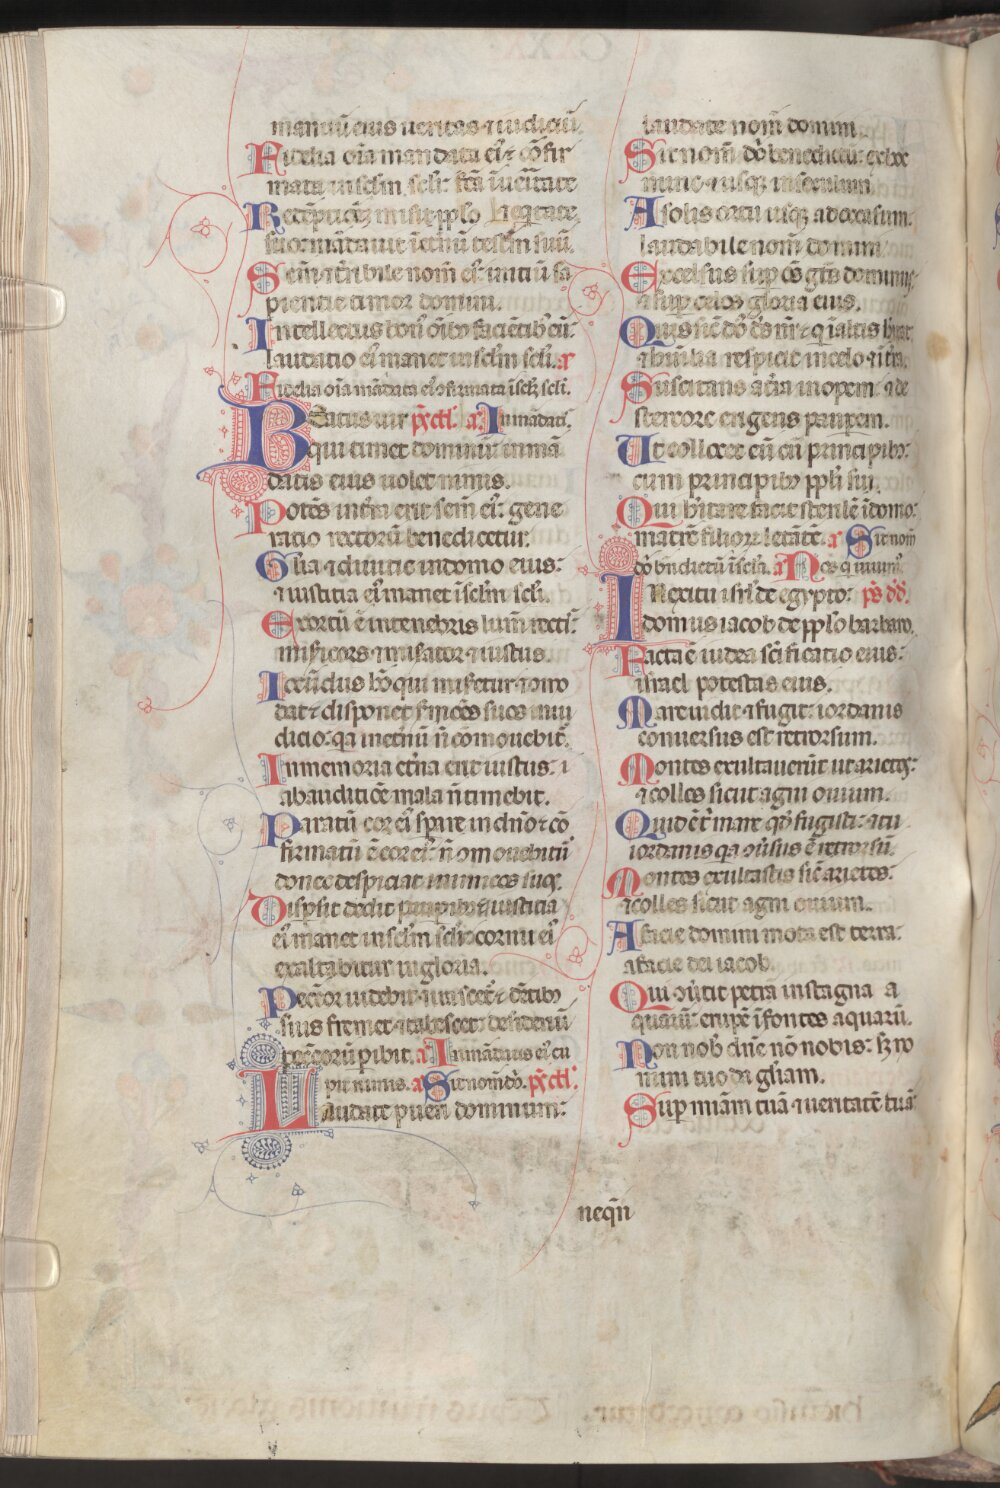 manuū eius ueritas ⁊ iudiciū
Fidelia oīa mandata eiꝰ: cōfir
mata in sclm̄ scli: fc̄a ī ueritate
Redēptionē misit pp̄lo
suo: mādauit ī et̄nū testm̄ suū.
Sc̄m ⁊ t̄ribile nom̄ eiꝰ: initiū sa
pientie timor domini.
Intellectus bonꝰ oīb₃ faciētib₃ eū:
laudatio eiꝰ manet in sclm̄ scli. a
Fidelia oīa mādata eiꝰ ↄfirmata ī sclm̄ scli.
Beatus uir ps̄ctꝰ. a. In mādatꝭ.
qui timet dominū: in mā
datis eius uolet nimis.
Potēs in tr̄a erit sem̄ eiꝰ: gene
ratio rectorū benedicetur.
Glīa ⁊ diuitie in domo eius:
⁊ iustitia eiꝰ manet ī sclm̄ scli.
Exortū ē in tenebris lum̄ rectiꝭ:
misīcors ⁊ misatōr ⁊ iustus.
Iocūdus hō qui misetur ⁊ ōmo
dat: disponet sermōes suos in iu
dicio: qa in et̄nū n̄ cōmouebit̄.
In memoria et̄na erit iustus: ⁊
ab auditiōe mala n̄ timebit.
Paratū cor eiꝰ sp̄are in dn̄o: cō
firmatū ē cor eiꝰ: n̄ ↄmouebitū
donec despiciat inimicos suoꝭ.
Disp̄sit dedit paup̄ib₃: iustitia
eiꝰ manet in sclm̄ scli: cornu eiꝰ
exaltabitur in gloria.
Pecc̄or uidebit ⁊ irascet̄: dētib₃
suis fremet ⁊ tabescet: desideriū
pecc̄orū pibit. a In mādatis eiꝰ cu
pit nimis. a Sit nom̄ dō. ps̄ctꝰ.
Laudate pueri dominum:
laudate nom̄ domini.
Sit nom̄ dō benedictū: ex hoc
nunc ⁊ usq₃ in seculum.
A solis ortu usq₃ ad occasum:
laudabile nom̄ domini.
Excelsus sup oēs gēs dominus:
⁊ sup celos gloria eius.
Quis sic̄ dō ds̄ nr̄ q ī altis hītat:
⁊ humilia respicit in celo ⁊ ī tr̄a.
Suscitans a tr̄a inopem: ⁊ de
stercore erigens paupem.
Ut collocet eū cū principib₃:
cum principib₃ pp̄li sui.
Qui hītare facit sterilē ī domo:
matrē filioꝝ letātē. a Sit nom̄
dō bn̄dictū ī scla. a Nos q uiuimꝰ.
In exitu isrl̄ de egypto: ps̄ dd̄.
domus iacob de pp̄lo barbaro.
Facta ē iudea sc̄ificatio eius:
israel potestas eius.
Mare uidit ⁊ fugit: iordanis
conuersus est retrorsum.
Montes exultauerūt ut arietes:
⁊ colles sicut agni ouium.
Quid ē t̄ mare qd̄ fugisti: ⁊ tu
iordanis qa ↄuersus ē retrorsū.
Montes exultastis sic̄ arietes:
⁊ colles sicut agni ouium.
A facie domini mota est terra:
a facie dei iacob.
Qui ↄuertit petrā in stagna a
quarū: ⁊ rupē ī fontes aquarū.
Non nob̄ dn̄e nō nobis: s₃ no
mini tuo da glīam.
Sup mīam tuā ⁊ ueritatē tuā
neqn̄